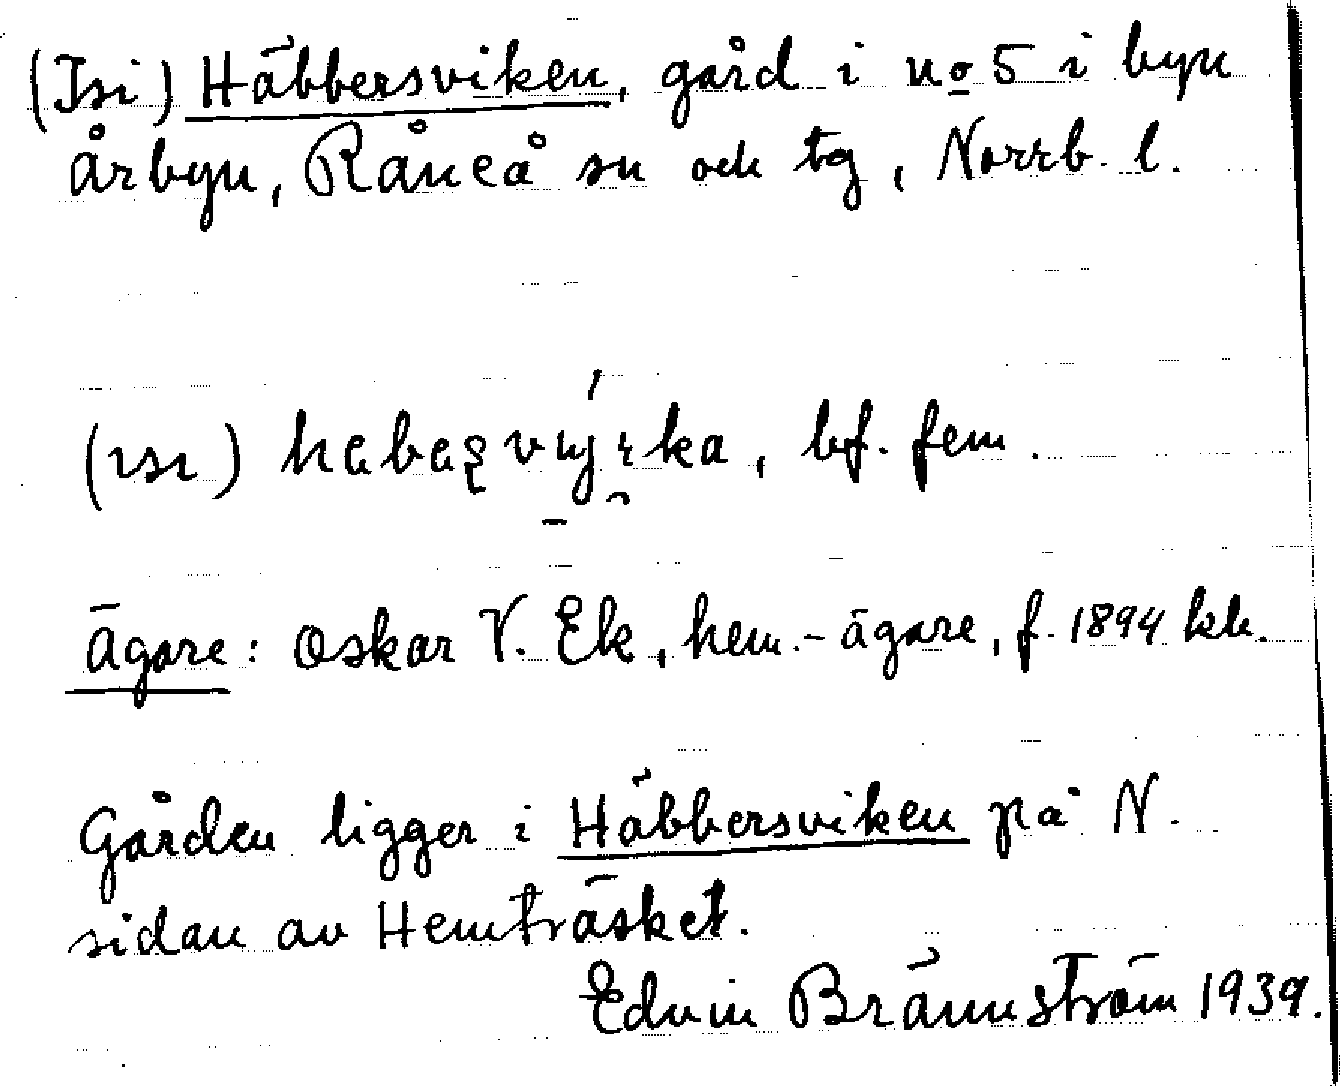 (Isi) Häbbersviken, gård i no 5 i byn
Årbyn, Råneå sn och tg, Norrb. l.
(ısı) , bf. fem.
Ägare: Oskar V. Ek, hem.-ägare, f. 1894 kb.
Gården ligger i Häbbersviken på N.
sidan av Hemträsket.
Edvin Brännström 1939.